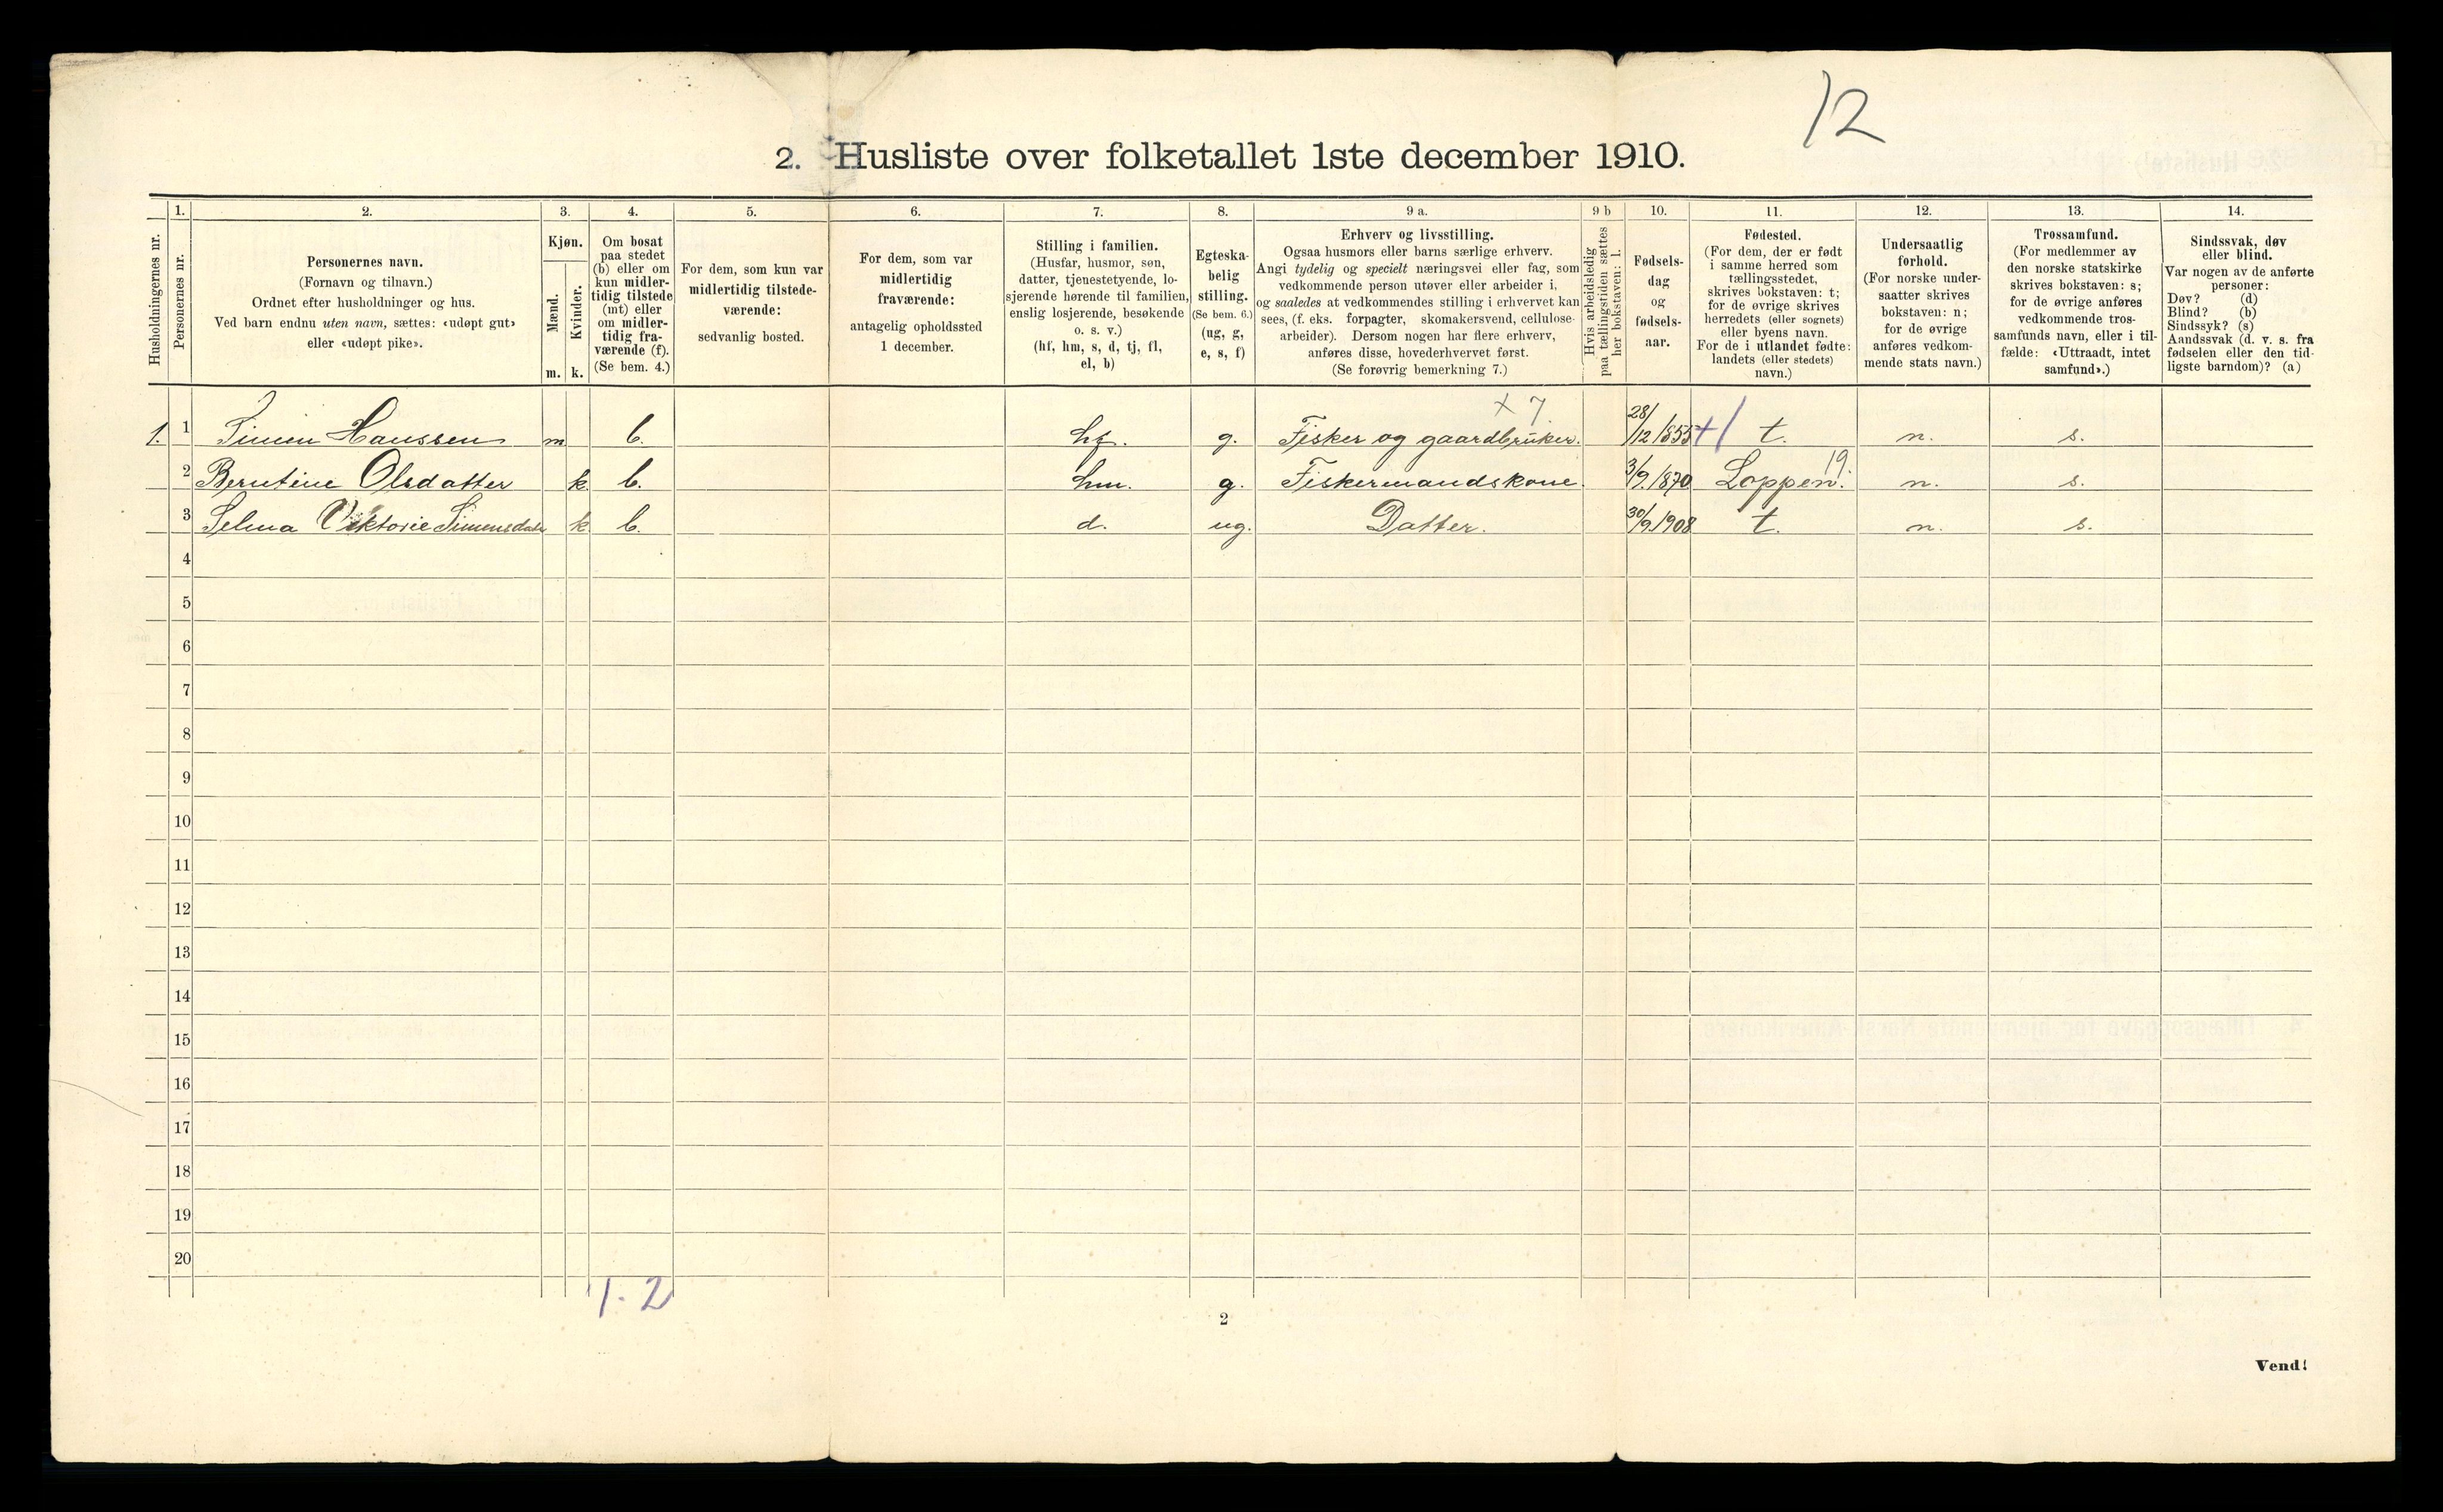 12
2. Husliste over folketallet 1ste december 1910.
1. 2. 3. 4. 5. 6. 7. 8. 9 a. 9 b 10. 11. 12. 13. 14.
Husholdningernes nr.
Personernes nr.
Personernes navn.
(Fornavn og tilnavn.)
Ordnet efter husholdninger og hus.
Ved barn endnu uten navn, sættes: «udøpt gut»
eller «udøpt pike».
Kjøn.
Mænd.
Kvinder.
m. k.
Om bosat
paa stedet
(b) eller om
kun midler-
tidig tilstede
(mt) eller
om midler-
tidig fra-
værende (f).
(Se bem. 4.)
For dem, som kun var
midlertidig tilstede-
værende:
sedvanlig bosted.
For dem, som var
midlertidig
fraværende:
antagelig opholdssted
1 december.
Stilling i familien.
(Husfar, husmor, søn,
datter, tjenestetyende, lo-
sjerende hørende til familien,
enslig losjerende, besøkende
o. s. v.)
(hf, hm, s, d, tj, fl,
el, b)
Egteska-
belig
stilling.
(Se bem. 6.)
(ug, g,
e, s, f)
Erhverv og livsstilling.
Ogsaa husmors eller barns særlige erhverv.
Angi tydelig og specielt næringsvei eller fag, som
vedkommende person utøver eller arbeider i,
og saaledes at vedkommendes stilling i erhvervet kan
sees, (f. eks. forpagter, skomakersvend, cellulose-
arbeider). Dersom nogen har flere erhverv,
anføres disse, hovederhvervet først.
(Se forøvrig bemerkning 7.)
Hvis arbeidsledig
paa tællingstiden sættes
her bokstaven: l.
Fødsels-
dag
og
fødsels-
aar.
Fødested.
(For dem, der er født
i samme herred som
tællingsstedet,
skrives bokstaven: t;
for de øvrige skrives
herredets (eller sognets)
eller byens navn.
For de i utlandet fødte:
landets (eller stedets)
navn.)
Undersaatlig
forhold.
(For norske under-
saatter skrives
bokstaven: n;
for de øvrige
anføres vedkom-
mende stats navn.)
Trossamfund.
(For medlemmer av
den norske statskirke
skrives bokstaven: s;
for de øvrige anføres
vedkommende tros-
samfunds navn, eller i til-
fælde: «Uttraadt, intet
samfund».)
Sindssvak, døv
eller blind.
Var nogen av de anførte
personer:
Døv? (d)
Blind? (b)
Sindssyk? (s)
Aandssvak (d. v. s. fra
fødselen eller den tid-
ligste barndom)? (a)
x 7
1. 1 Simon Hanssen m b. hf. g. Fisker og gaardbruker. 28/12 1855 +1 t. n. s.
19.
2 Berntine Olsdatter k b. hm. g. Fiskermandskone. 3/9.1870 Loppen. n. s.
3 Selma Viktorie Simonsdatr k b. d. ug. Datter. 30/9.1908 t. n. s.
4
5
6
7
8
9
10
11
12
13
14
15
16
17
18
19
20
1. 2
2
Vend!